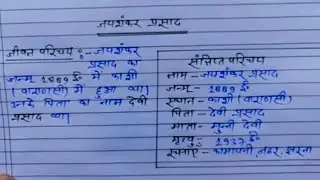 जयशंकर प्रसाद
जीवन परिचय :- जयशंकर
प्रसाद का
जन्म 1889 ई० में काशी
(वाराणसी) में हुआ था।
उनके पिता का नाम देवी
प्रसाद था।
संक्षिप्त परिचय
नाम - जयशंकर प्रसाद
जन्म - 1889 ई०
स्थान - काशी (वाराणसी)
पिता - देवी प्रसाद
माता - मुन्नी देवी
मृत्यु - 1937 ई०
रचनाएँ - कामायनी, लहर, झरना